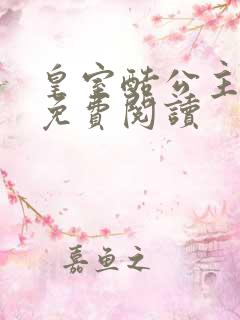 皇室酷公主
免費閱讀
嘉鱼之